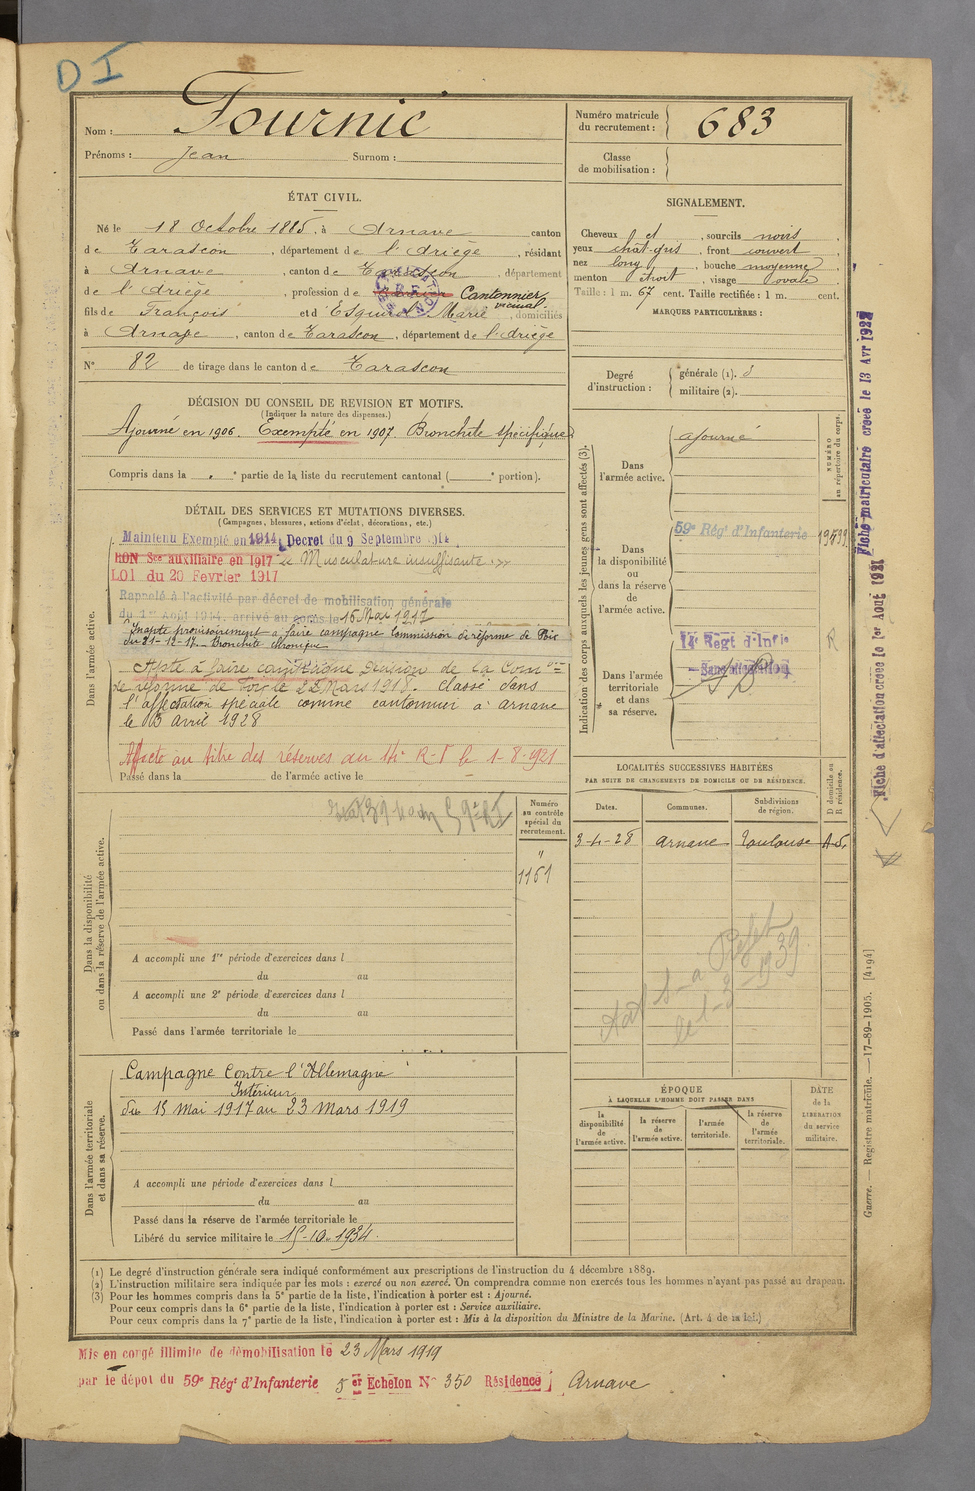 D I
Nom : Fournié
Prénoms : Jean Surnom :
ÉTAT CIVIL.
Né le 18 Octobre 1885, à Arnave canton
de Tarascon, département de l'Ariège, résidant
à Arnave, canton de Tarascon, département
de l'Ariège, profession de Cantonnier vicinal
fils de François et d'Esquirol Marie, domiciliés
à Arnave, canton de Tarascon, département de l'Ariège
N° 82 de tirage dans le canton de Tarascon
DÉCISION DU CONSEIL DE REVISION ET MOTIFS.
(Indiquer la nature des dispenses.)
Ajourné en 1906. Exempté en 1907. Bronchite spécifique
Compris dans la e partie de la liste du recrutement cantonal ( e portion).
DÉTAIL DES SERVICES ET MUTATIONS DIVERSES.
(Campagnes, blessures, actions d'éclat, décorations, etc.)
Dans l'armée active.
Maintenu Exempté en 1914, Decret du 9 Septembre 1914
BON Sce auxiliaire en 1917 Musculature insuffisante
LOI du 20 Fevrier 1917
Rappelé à l'activité par décret de mobilisation générale
du 1er Août 1914, arrivé au corps le 15 Mai 1917
Inapte provisoirement à faire campagne Commission de réforme de Foix
du 21-12-17. Bronchite chronique
Apte à faire campagne Décision de la Comon
de réforme de Foix le 22 Mars 1918. Classé dans
l'affectation spéciale comme cantonnier à Arnave
le 13 avril 1928
Affecté au titre des réserves au 14e R-I le 1-8-1921
Passé dans la de l'armée active le
Dans la disponibilité
ou dans la réserve de l'armée active.
Numéro
au contrôle
spécial du
recrutement.
"
1151
A accompli une 1re période d'exercices dans l
du au
A accompli une 2e période d'exercices dans l
du au
Passé dans l'armée territoriale le
Dans l'armée territoriale
et dans sa réserve.
Campagne Contre l'Allemagne
Intérieur
du 15 Mai 1917 au 23 Mars 1919
A accompli une période d'exercices dans l
du au
Passé dans la réserve de l'armée territoriale le
Libéré du service militaire le 15-10-1934.
Numéro matricule
du recrutement : 683
Classe
de mobilisation :
SIGNALEMENT.
Cheveux et, sourcils noirs,
yeux chat-gris, front couvert,
nez long, bouche moyenne,
menton étroit, visage ovale
Taille : 1 m. 67 cent. Taille rectifiée : 1 m. cent.
MARQUES PARTICULIÈRES :
Degré
d'instruction :
générale (1). 3
militaire (2).
Indication des corps auxquels les jeunes gens sont affectés (3).
NUMÉRO
au répertoire du corps.
Dans
l'armée active.
ajourné
Dans
la disponibilité
ou
dans la réserve
de
l'armée active.
59e Régt d'Infanterie
Dans l'armée
territoriale
et dans
sa réserve.
14e Régt d'Infie
Sans affectation
R
LOCALITÉS SUCCESSIVES HABITÉES
PAR SUITE DE CHANGEMENTS DE DOMICILE OU DE RÉSIDENCE.
Dates.
Communes.
Subdivisions
de région.
D domicile ou
R résidence.
3-4-28 Arnave Toulouse
ÉPOQUE
À LAQUELLE L'HOMME DOIT PASSER DANS
la
disponibilité
de
l'armée active.
la réserve
de
l'armée active.
l'armée
territoriale.
la réserve
de
l'armée
territoriale.
DATE
de la
LIBÉRATION
du service
militaire.
Fiche matriculaire creée le 13 Avr 1928
Fiche d'affectation creée le 1er Août 1921
Guerre. — Registre matricule. — 17-89-1905. [4194]
(1) Le degré d'instruction générale sera indiqué conformément aux prescriptions de l'instruction du 4 décembre 1889.
(2) L'instruction militaire sera indiquée par les mots : exercé ou non exercé. On comprendra comme non exercés tous les hommes n'ayant pas passé au drapeau.
(3) Pour les hommes compris dans la 5e partie de la liste, l'indication à porter est : Ajourné.
Pour ceux compris dans la 6e partie de la liste, l'indication à porter est : Service auxiliaire.
Pour ceux compris dans la 7e partie de la liste, l'indication à porter est : Mis à la disposition du Ministre de la Marine. (Art. 4 de la loi.)
Mis en congé illimité de démobilisation le 23 Mars 1919
par le dépôt du 59e Régt d'Infanterie 5 er Echelon N° 350 Résidence Arnave